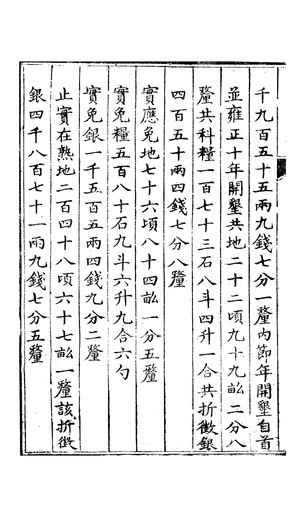 千九百五十五兩九錢七分一釐內節年開墾自首
並雍正十年開墾共地二十二頃九十九畆二分八
釐共科糧一百七十三石八斗四升一合共折徵銀
四百五十兩四錢七分八釐
實應免地七十六頃八十四畆一分五釐
實免糧五百八十石九斗六升九合六勺
實免銀一千五百五兩四錢九分二釐
止實在熟地二百四十八頃六十七畆一釐該折徵
銀四千八百七十一兩九錢七分五釐